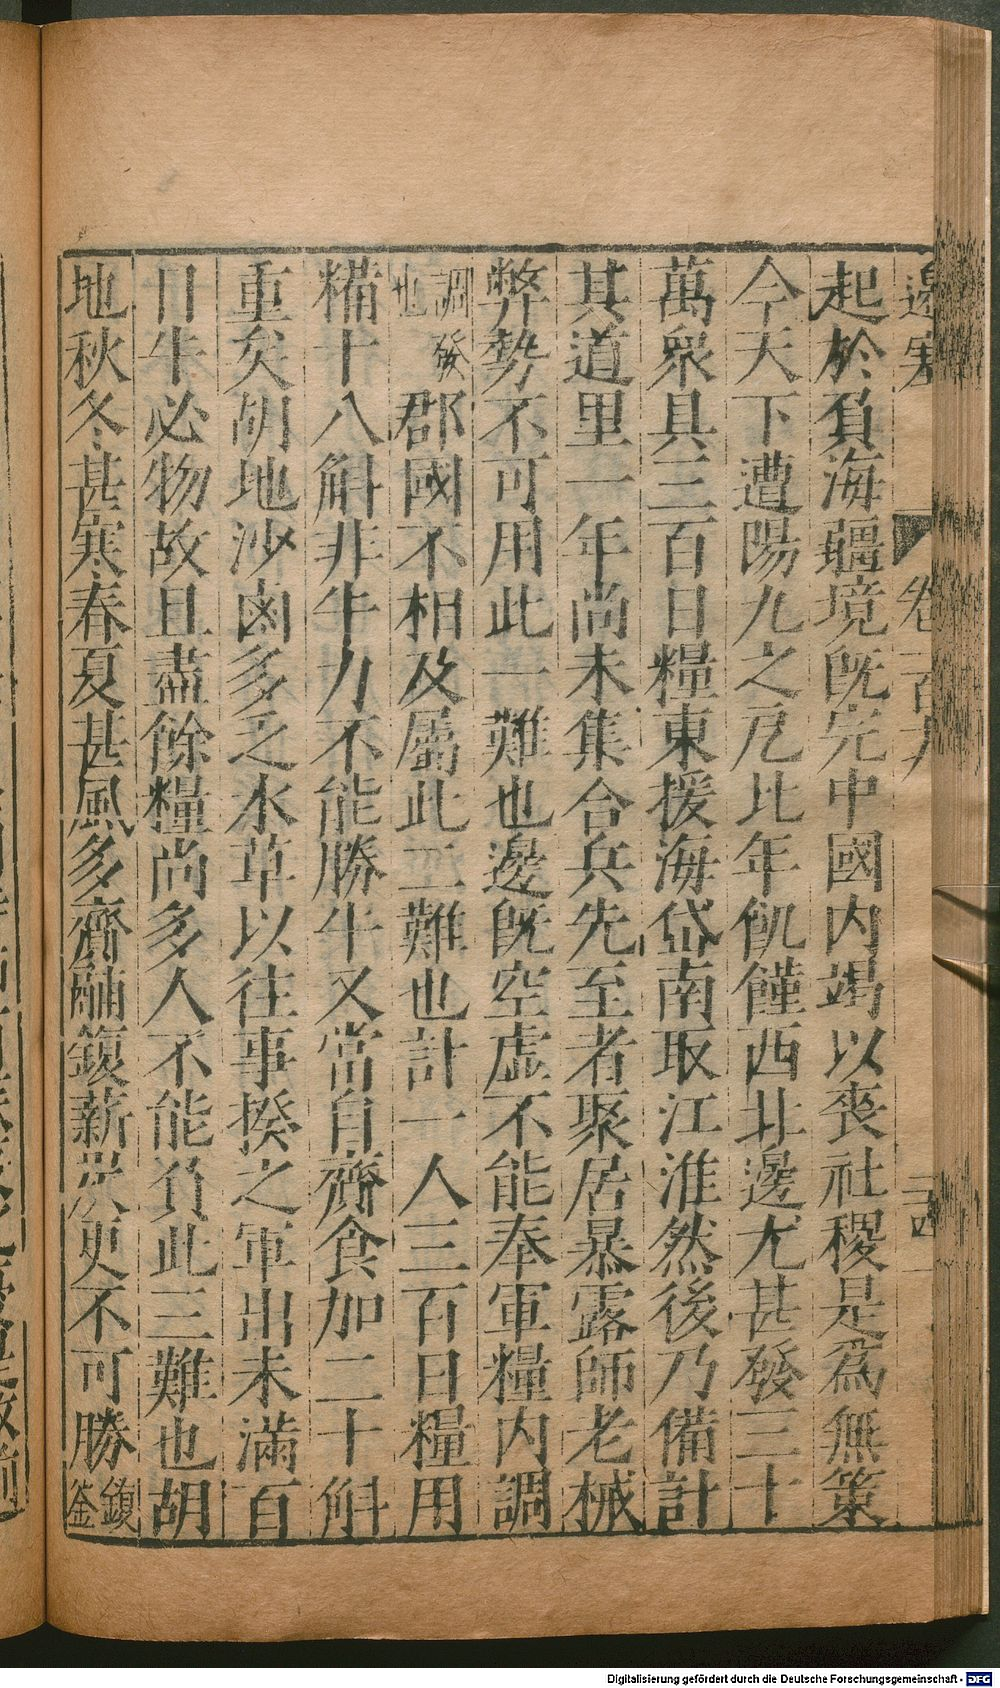 邊塞 卷一百九 三四
起於負海疆境旣完中國內竭以喪社稷是爲無策
今天下遭陽九之戹比年飢饉西北邊尤甚發三十
萬衆具三百日糧東援海岱南取江淮然後乃備計
其道里一年尚未集合兵先至者聚居暴露師老械
弊勢不可用此一難也邊旣空虛不能奉軍糧內調
調發也郡國不相及屬此二難也計一人三百日糧用
糒十八斛非牛力不能勝牛又當自齎食加二十斛
重矣胡地沙鹵多乏水草以往事揆之軍出未滿百
日牛必物故且盡餘糧尚多人不能負此三難也胡
地秋冬甚寒春夏甚風多齎鬴鍑薪炭更不可勝鍑釜
Digitalisierung gefördert durch die Deutsche Forschungsgemeinschaft - DFG